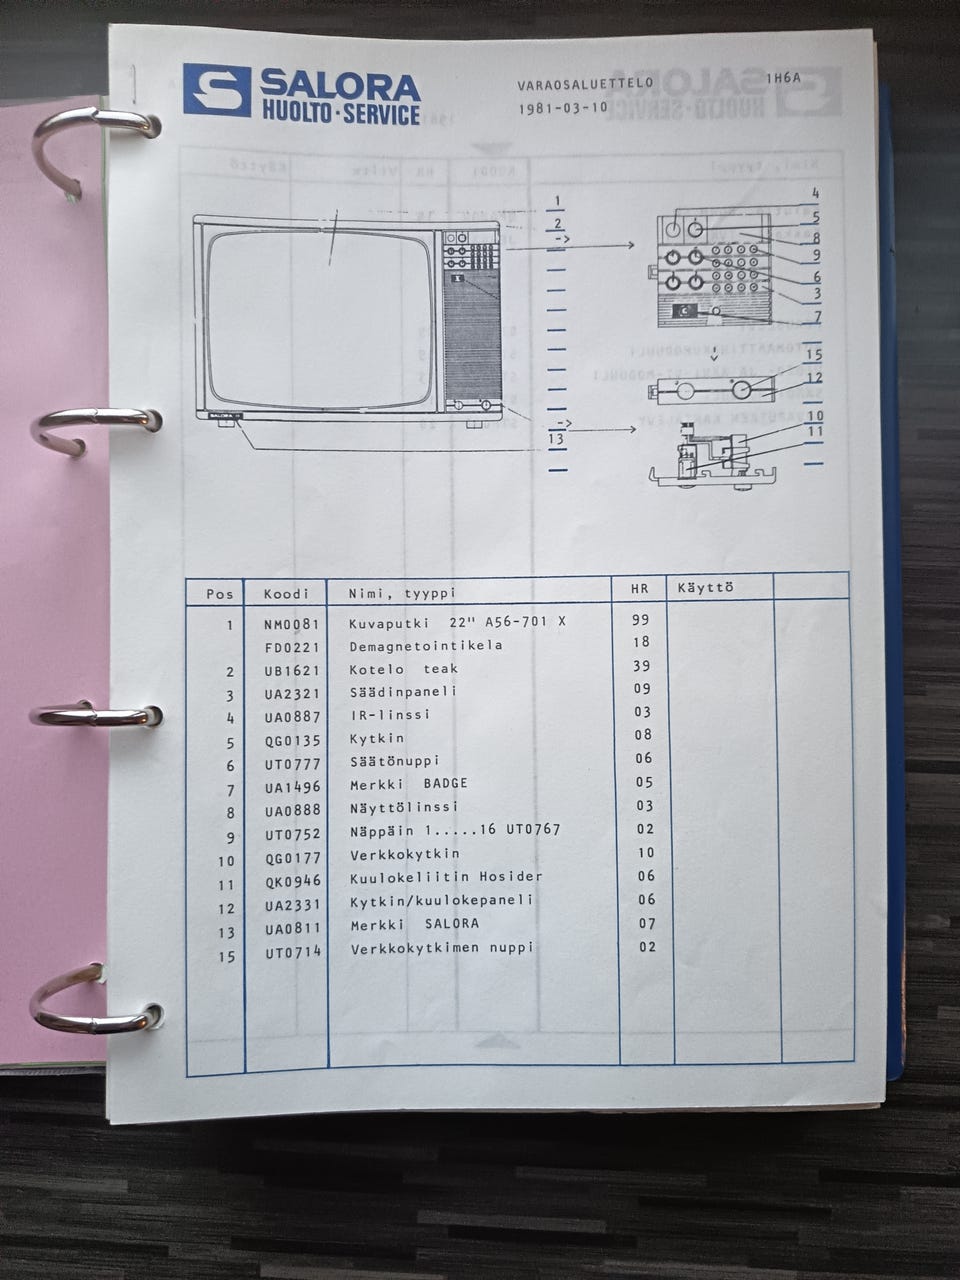 SALORA
HUOLTO·SERVICE
VARAOSALUETTELO 1H6A
1981-03-10
1
2
->
->
13
4
5
8
9
6
3
7
15
12
10
11
SALORA
Pos Koodi Nimi, tyyppi HR Käyttö
1 NM0081 Kuvaputki 22" A56-701 X 99
FD0221 Demagnetointikela 18
2 UB1621 Kotelo teak 39
3 UA2321 Säädinpaneli 09
4 UA0887 IR-linssi 03
5 QG0135 Kytkin 08
6 UT0777 Säätönuppi 06
7 UA1496 Merkki BADGE 05
8 UA0888 Näyttölinssi 03
9 UT0752 Näppäin 1.....16 UT0767 02
10 QG0177 Verkkokytkin 10
11 QK0946 Kuulokeliitin Hosider 06
12 UA2331 Kytkin/kuulokepaneli 06
13 UA0811 Merkki SALORA 07
15 UT0714 Verkkokytkimen nuppi 02